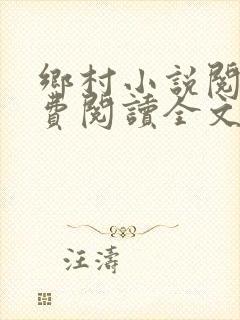 鄉村小說閱
費閱讀全文
汪濤